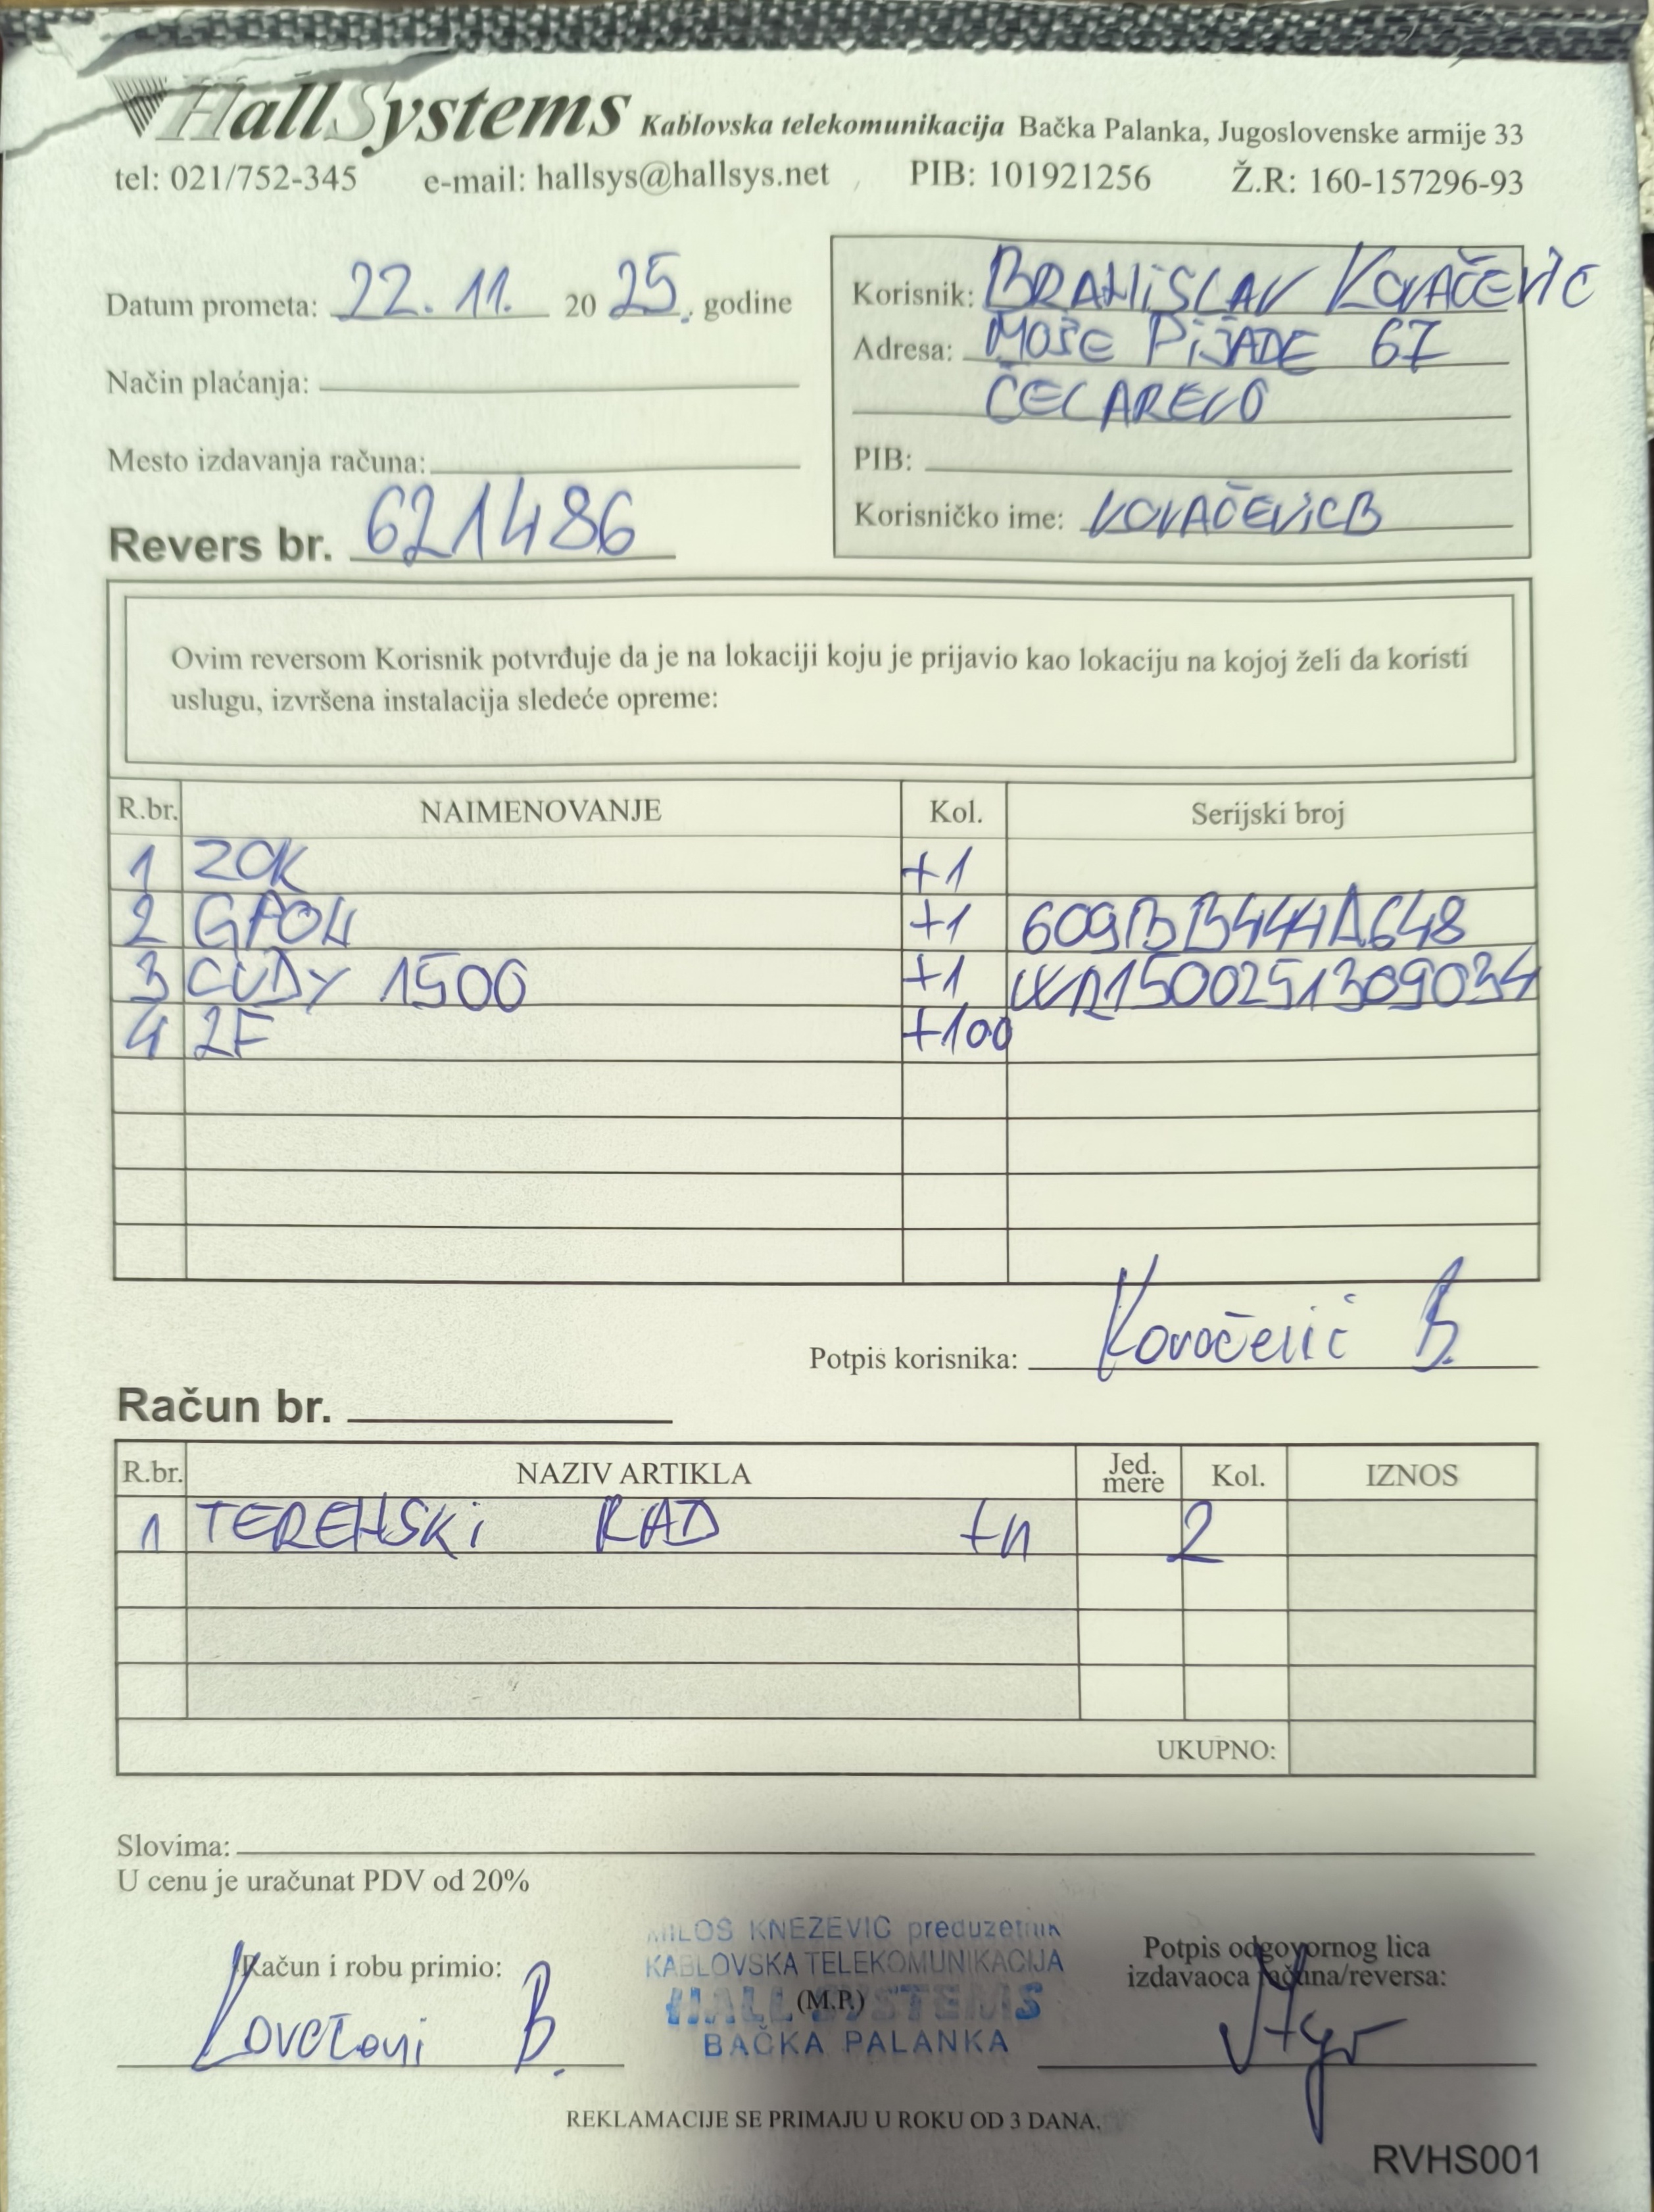 HallSystems Kablovska telekomunikacija Bačka Palanka, Jugoslovenske armije 33
tel: 021/752-345 e-mail: hallsys@hallsys.net PIB: 101921256 Ž.R: 160-157296-93
Datum prometa: 22. 11. 20 25. godine
Način plaćanja:
Mesto izdavanja računa:
Revers br. 621486
Korisnik: BRANiSLAV KOVAČEViC
Adresa: MOŠE PiJADE 67
ČELAREVO
PIB:
Korisničko ime: KOVAČEViCB
Ovim reversom Korisnik potvrđuje da je na lokaciji koju je prijavio kao lokaciju na kojoj želi da koristi
uslugu, izvršena instalacija sledeće opreme:
R.br. NAIMENOVANJE Kol. Serijski broj
1 ZOK +1
2 GPON +1 609BB444A648
3 CUDY 1500 +1 WR1500251309034
4 2F +100
Potpis korisnika: Kovačević B.
Račun br.
R.br. NAZIV ARTIKLA Jed. mere Kol. IZNOS
1 TERENSKi RAD 2
UKUPNO:
Slovima:
U cenu je uračunat PDV od 20%
Račun i robu primio:
B.
MILOŠ KNEŽEVIĆ preduzetnik
KABLOVSKA TELEKOMUNIKACIJA
HALL SYSTEMS
(M.P.)
BAČKA PALANKA
Potpis odgovornog lica
izdavaoca računa/reversa:
REKLAMACIJE SE PRIMAJU U ROKU OD 3 DANA.
RVHS001